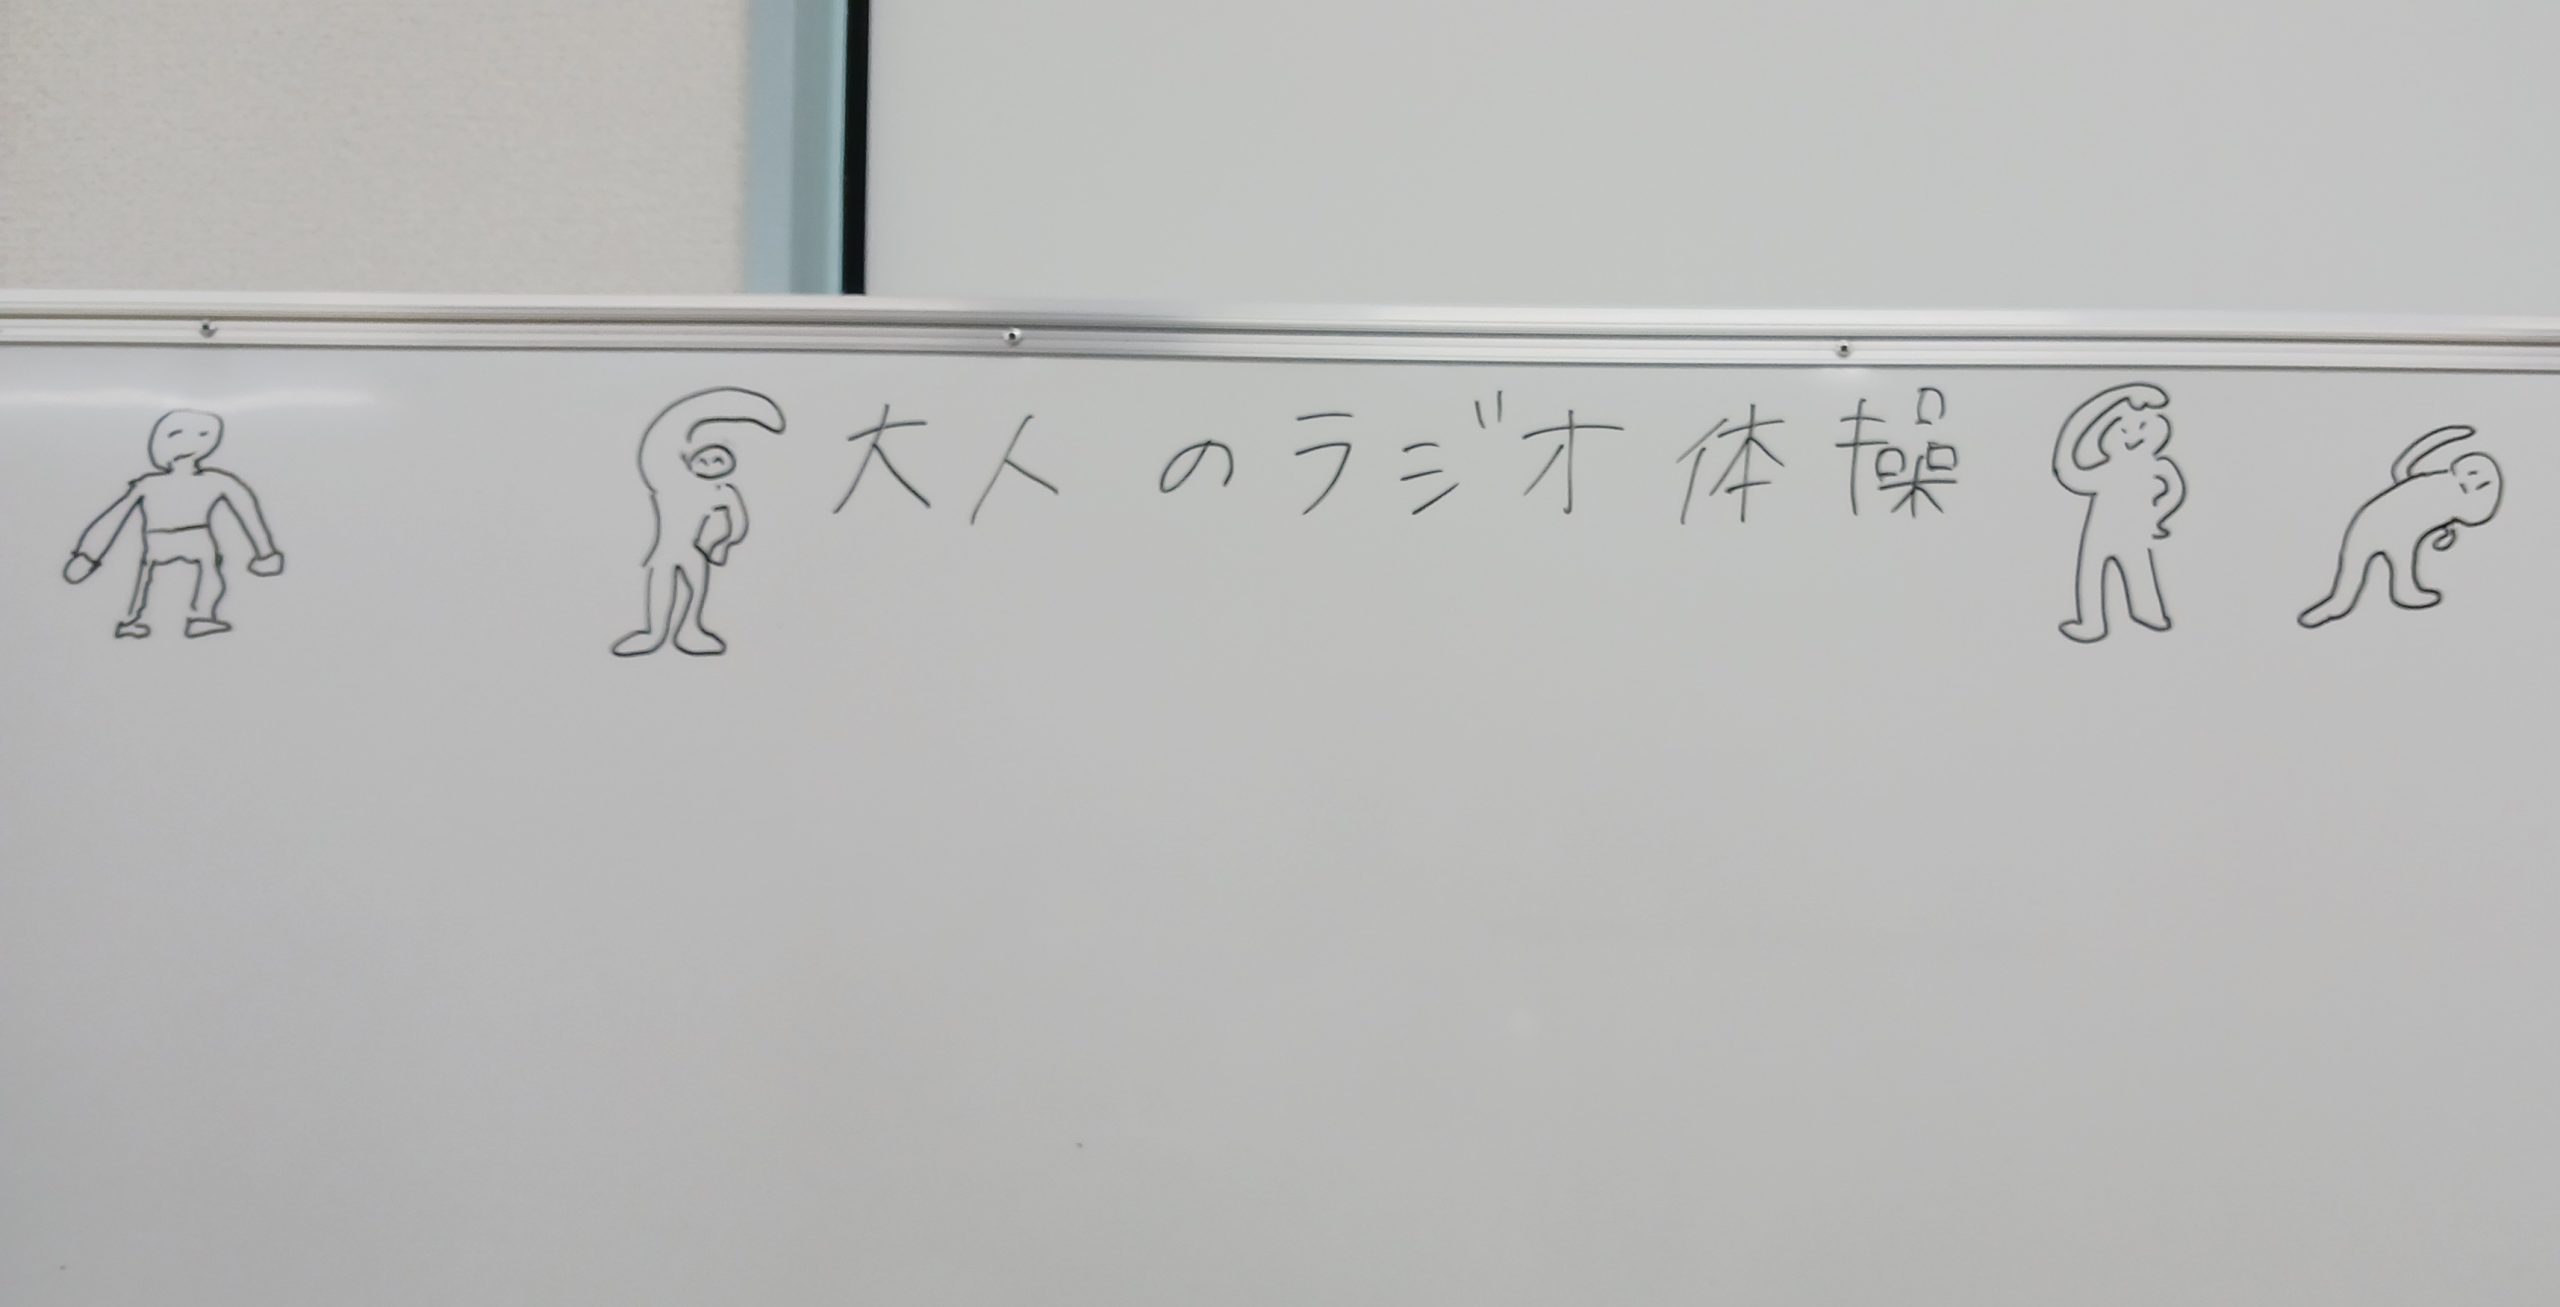 大人のラジオ体操